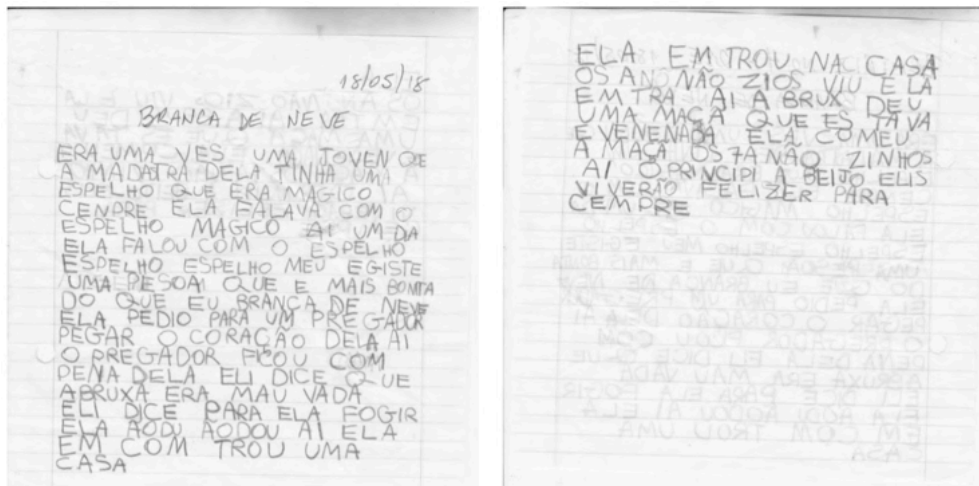 18/05/18
BRANCA DE NEVE
ERA UMA VES UMA JOVEN QE
A MADATRA DELA TINHA UMA
ESPELHO QUE ERA MAGICO
CENPRE ELA FALAVA COM O
ESPELHO MAGICO AI UM DA
ELA FALOU COM O ESPELHO
ESPELHO ESPELHO MEU EGISTE
UMA PESOAI QUE E MAIS BONITA
DO QUE EU BRANCA DE NEVE
ELA PEDIO PARA UM PREGADOR
PEGAR O CORAÇÃO DELA AI
O PREGADOR FICOU COM
PENA DELA ELI DICE QUE
ABRUXA ERA MAU VADA
ELI DICE PARA ELA FOGIR
ELA AODU AODOU AI ELA
EM COM TROU UMA
CASA
ELA EM TROU NA CASA
OS AN NÃO ZIOS VIU ELA
EM TRA AI A BRUX DEU
UMA MAÇÃ QUE ES TAVA
E VENENADA ELA COMEU
A MAÇÃ OS 7A NÃO ZINHOS
AI O PRINCIPI A BEIJO ELIS
VIVERÃO FELIZER PARA
CEMPRE